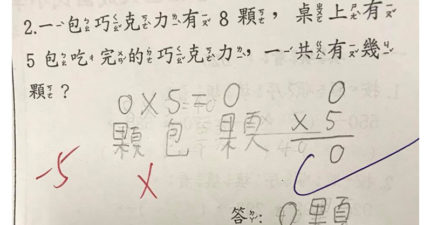 2.一包巧克力有8顆，桌上有
5包吃完的巧克力，一共有幾
顆？
0×5=0
顆 包 顆
0
×5
0
-5
答：0顆